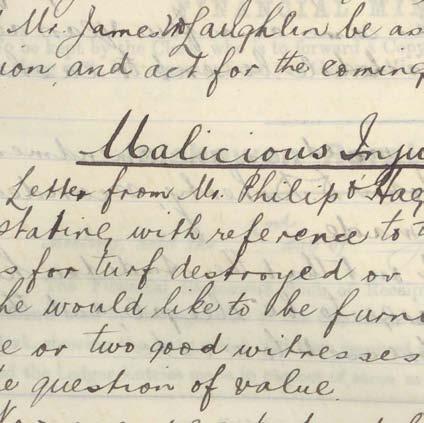 Mr. James McLaughlin be as
ion and act for the coming
Malicious Inju
Letter from Mr. Philip O'Hag
stating with reference to t
s for turf destroyed or
he would like to be furni
e or two good witnesses
e question of value.